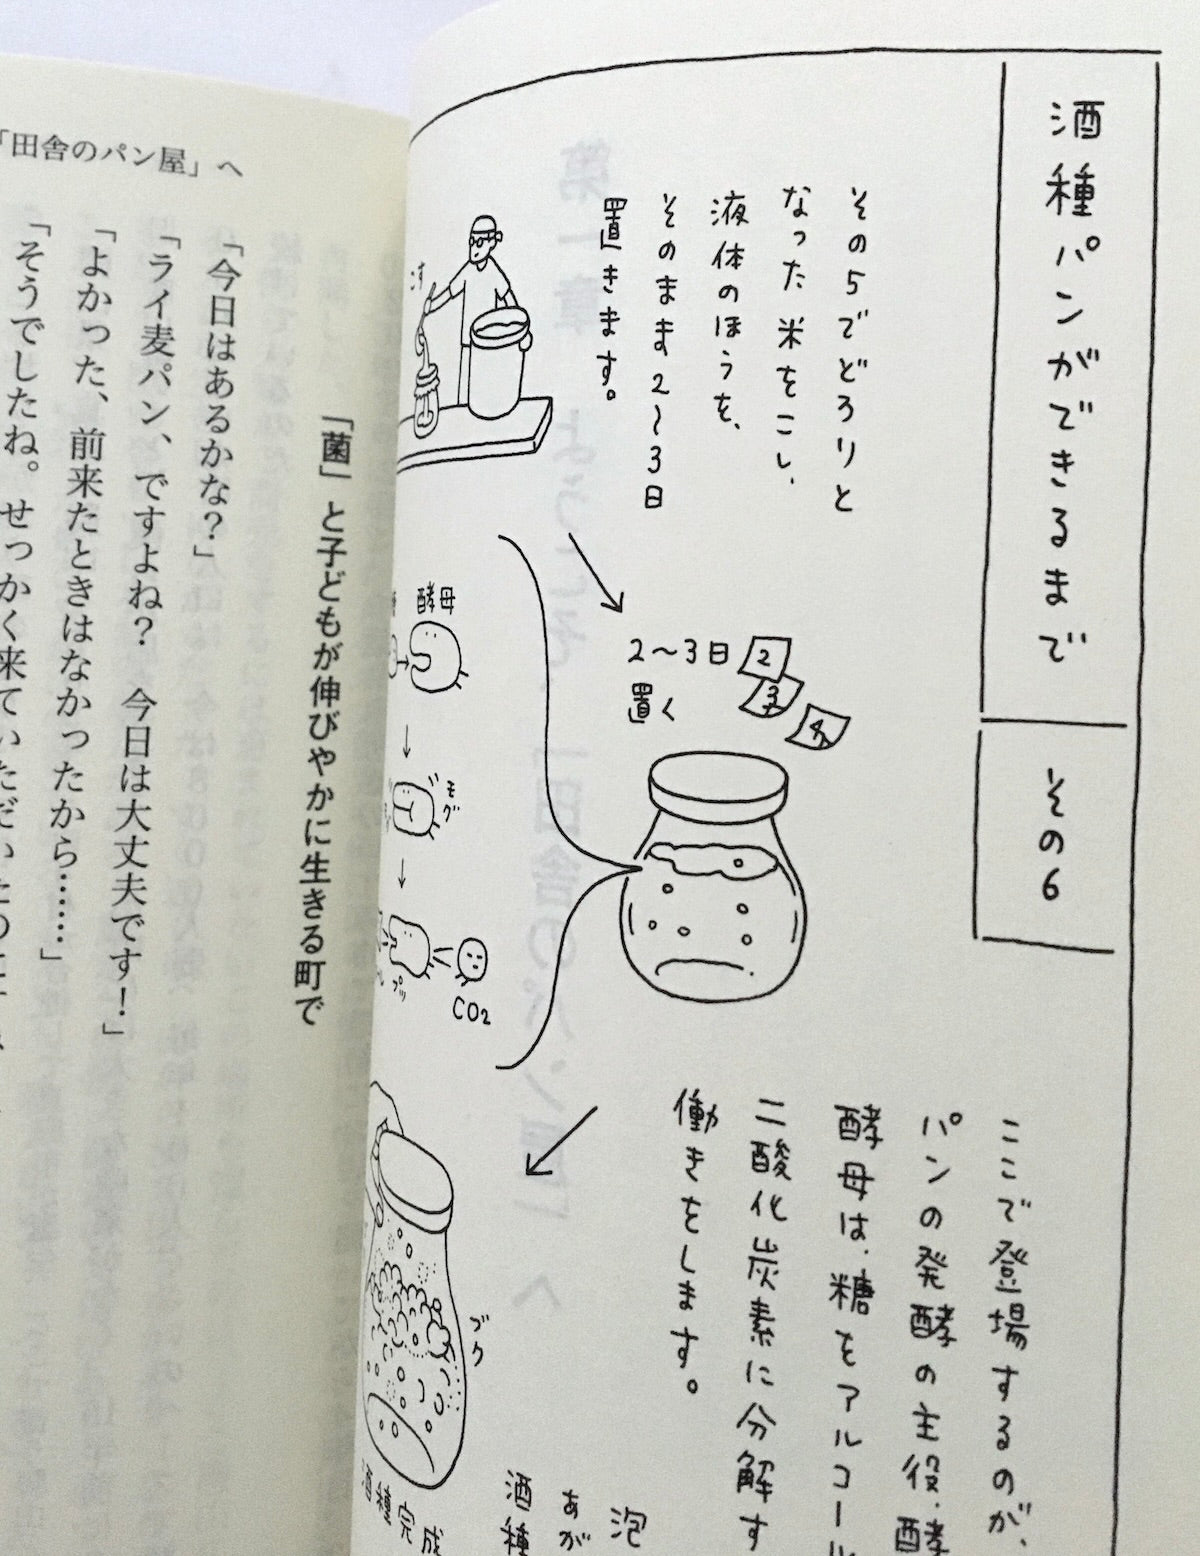 酒種パンができるまで
その6
その5でどろりと
なった米をこし、
液体のほうを、
そのまま2〜3日
置きます。
こす
2〜3日
置く
2
3
4
酵母
モグ
プッ
CO2
ここで登場するのが、
パンの発酵の主役、酵
酵母は、糖をアルコール
二酸化炭素に分解す
働きをします。
ブク
泡
あが
酒種
酒種完成
「田舎のパン屋」へ
「菌」と子どもが伸びやかに生きる町で
「今日はあるかな？」
「ライ麦パン、ですよね？　今日は大丈夫です！」
「よかった、前来たときはなかったから……」
「そうでしたね。せっかく来ていただいたのに